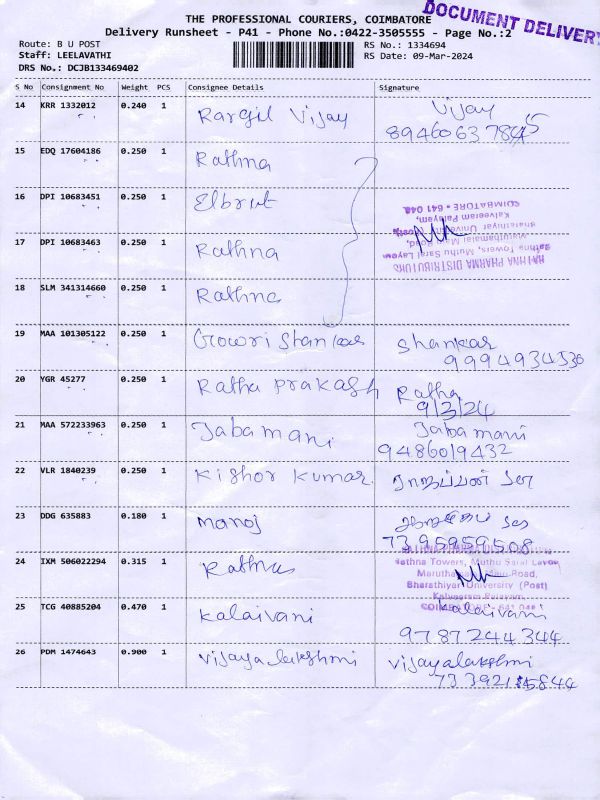 THE PROFESSIONAL COURIERS, COIMBATORE
DOCUMENT DELIVERY
Delivery Runsheet - P41 - Phone No.:0422-3505555 - Page No.:2
Route: B U POST
RS No.: 1334694
Staff: LEELAVATHI
RS Date: 09-Mar-2024
DRS No.: DCJB133469402
S No Consignment No Weight PCS Consignee Details Signature
14 KRR 1332012 0.240 1 Vijay
15 EDQ 17604186 0.250 1 Rathna
16 DPI 10683451 0.250 1
17 DPI 10683463 0.250 1 Rathna
RATHNA PHARMA DISTRIBUTORS
Rathna Towers, Muthu Saral Layout,
Maruthamalai Main Road,
Bharathiyar University (Post)
Kalveeram Palayam,
COIMBATORE - 641 046
18 SLM 341314660 0.250 1 Rathna
19 MAA 101305122 0.250 1 Gowri Shankar Shankar
9994934536
20 YGR 45277 0.250 1 Ratha prakash Ratha
9/3/24
21 MAA 572233963 0.250 1 Jaba mani Jaba mani
9486019432
22 VLR 1840239 0.250 1 Kishor Kumar
23 DDG 635883 0.180 1 Manoj
7395959508
24 IXM 506022294 0.315 1 Rathna
Rathna Towers, Muthu Saral Layout,
Maruthamalai Main Road,
Bharathiyar University (Post)
Kalveeram Palayam,
COIMBATORE - 641 046
25 TCG 40885204 0.470 1 Kalaivani Kalaivani
9787244344
26 PDM 1474643 0.900 1 Vijayalakshmi Vijayalakshmi